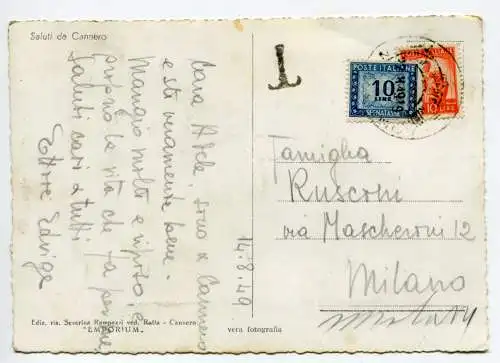 Saluti da Cannero
Cara Adele, sono a Cannero
e sto veramente bene.
Mangio molto e riposo, è
proprio la vita che fa per me
Saluti cari a tutti
Ettore Edvige
14.8.49
T
POSTE ITALIANE
10
LIRE
SEGNATASSE
10 LIRE
Famiglia
Rusconi
via Mascheroni 12
Milano
Ediz. ris. Severina Rampazzi ved. Ratta - Cannero
"EMPORIUM"
vera fotografia